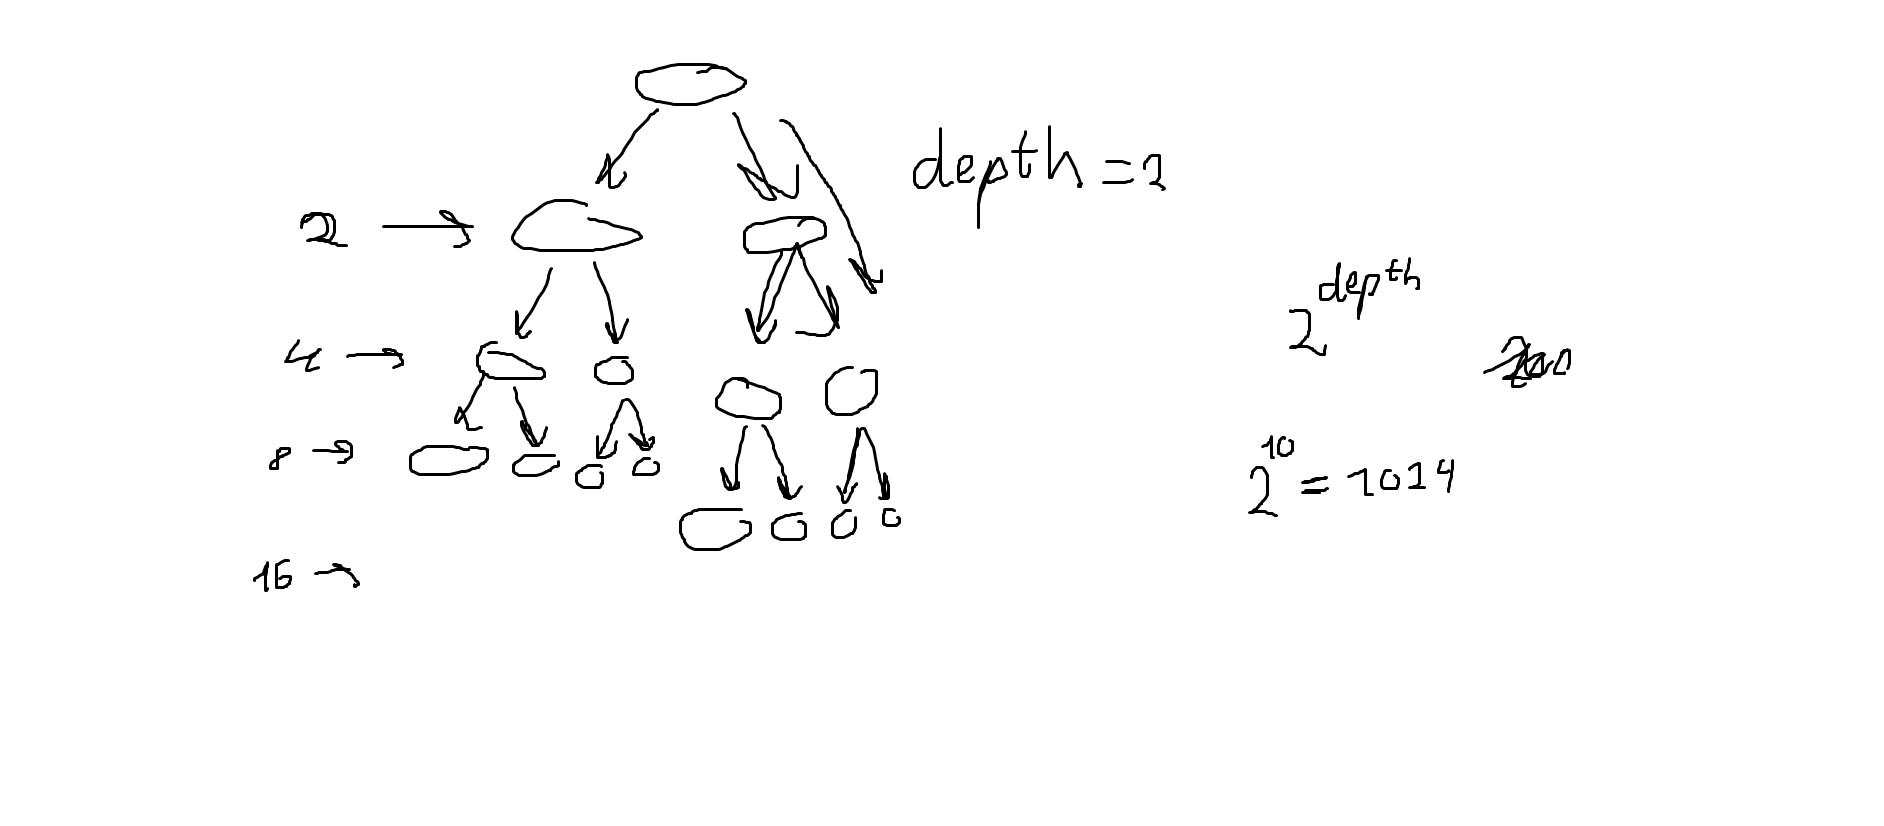 depth = 2
2
4
8
16
2^depth
2^10 = 1024